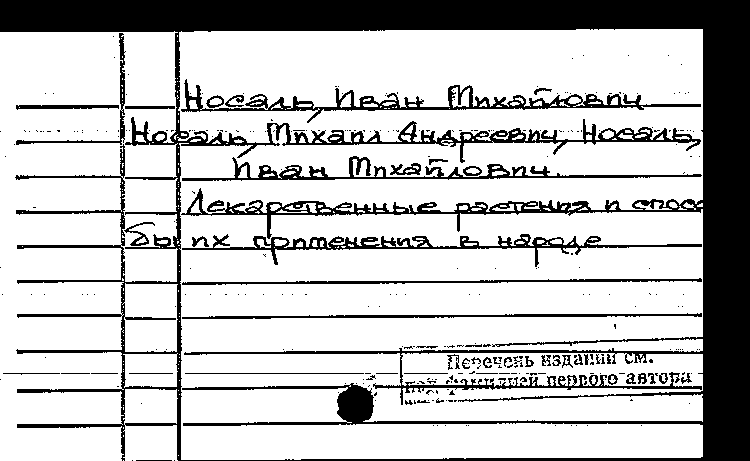 Носаль, Иван Михайлович
Носаль, Михаил Андреевич, Носаль,
Иван Михайлович.
Лекарственные растения и спосо
бы их применения в народе
Перечень изданий см.
под фамилией первого автора